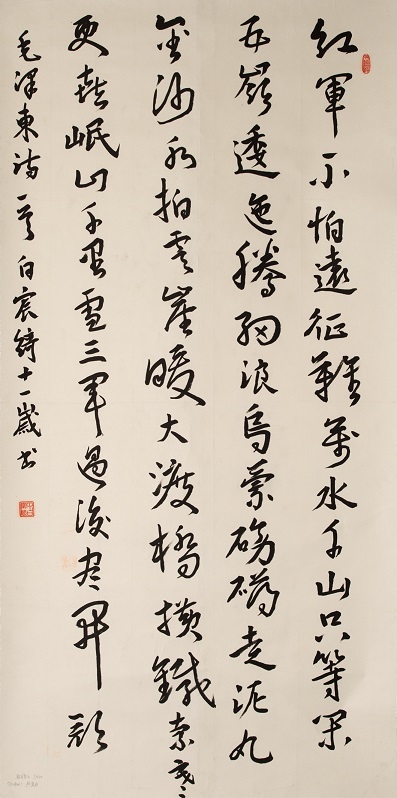 紅軍不怕遠征難萬水千山只等閑
五嶺逶迤騰細浪烏蒙磅礴走泥丸
金沙水拍雲崖暖大渡橋橫鐵索寒
更喜岷山千里雪三軍過後盡開顏
毛澤東詩一首白宸十一歲书